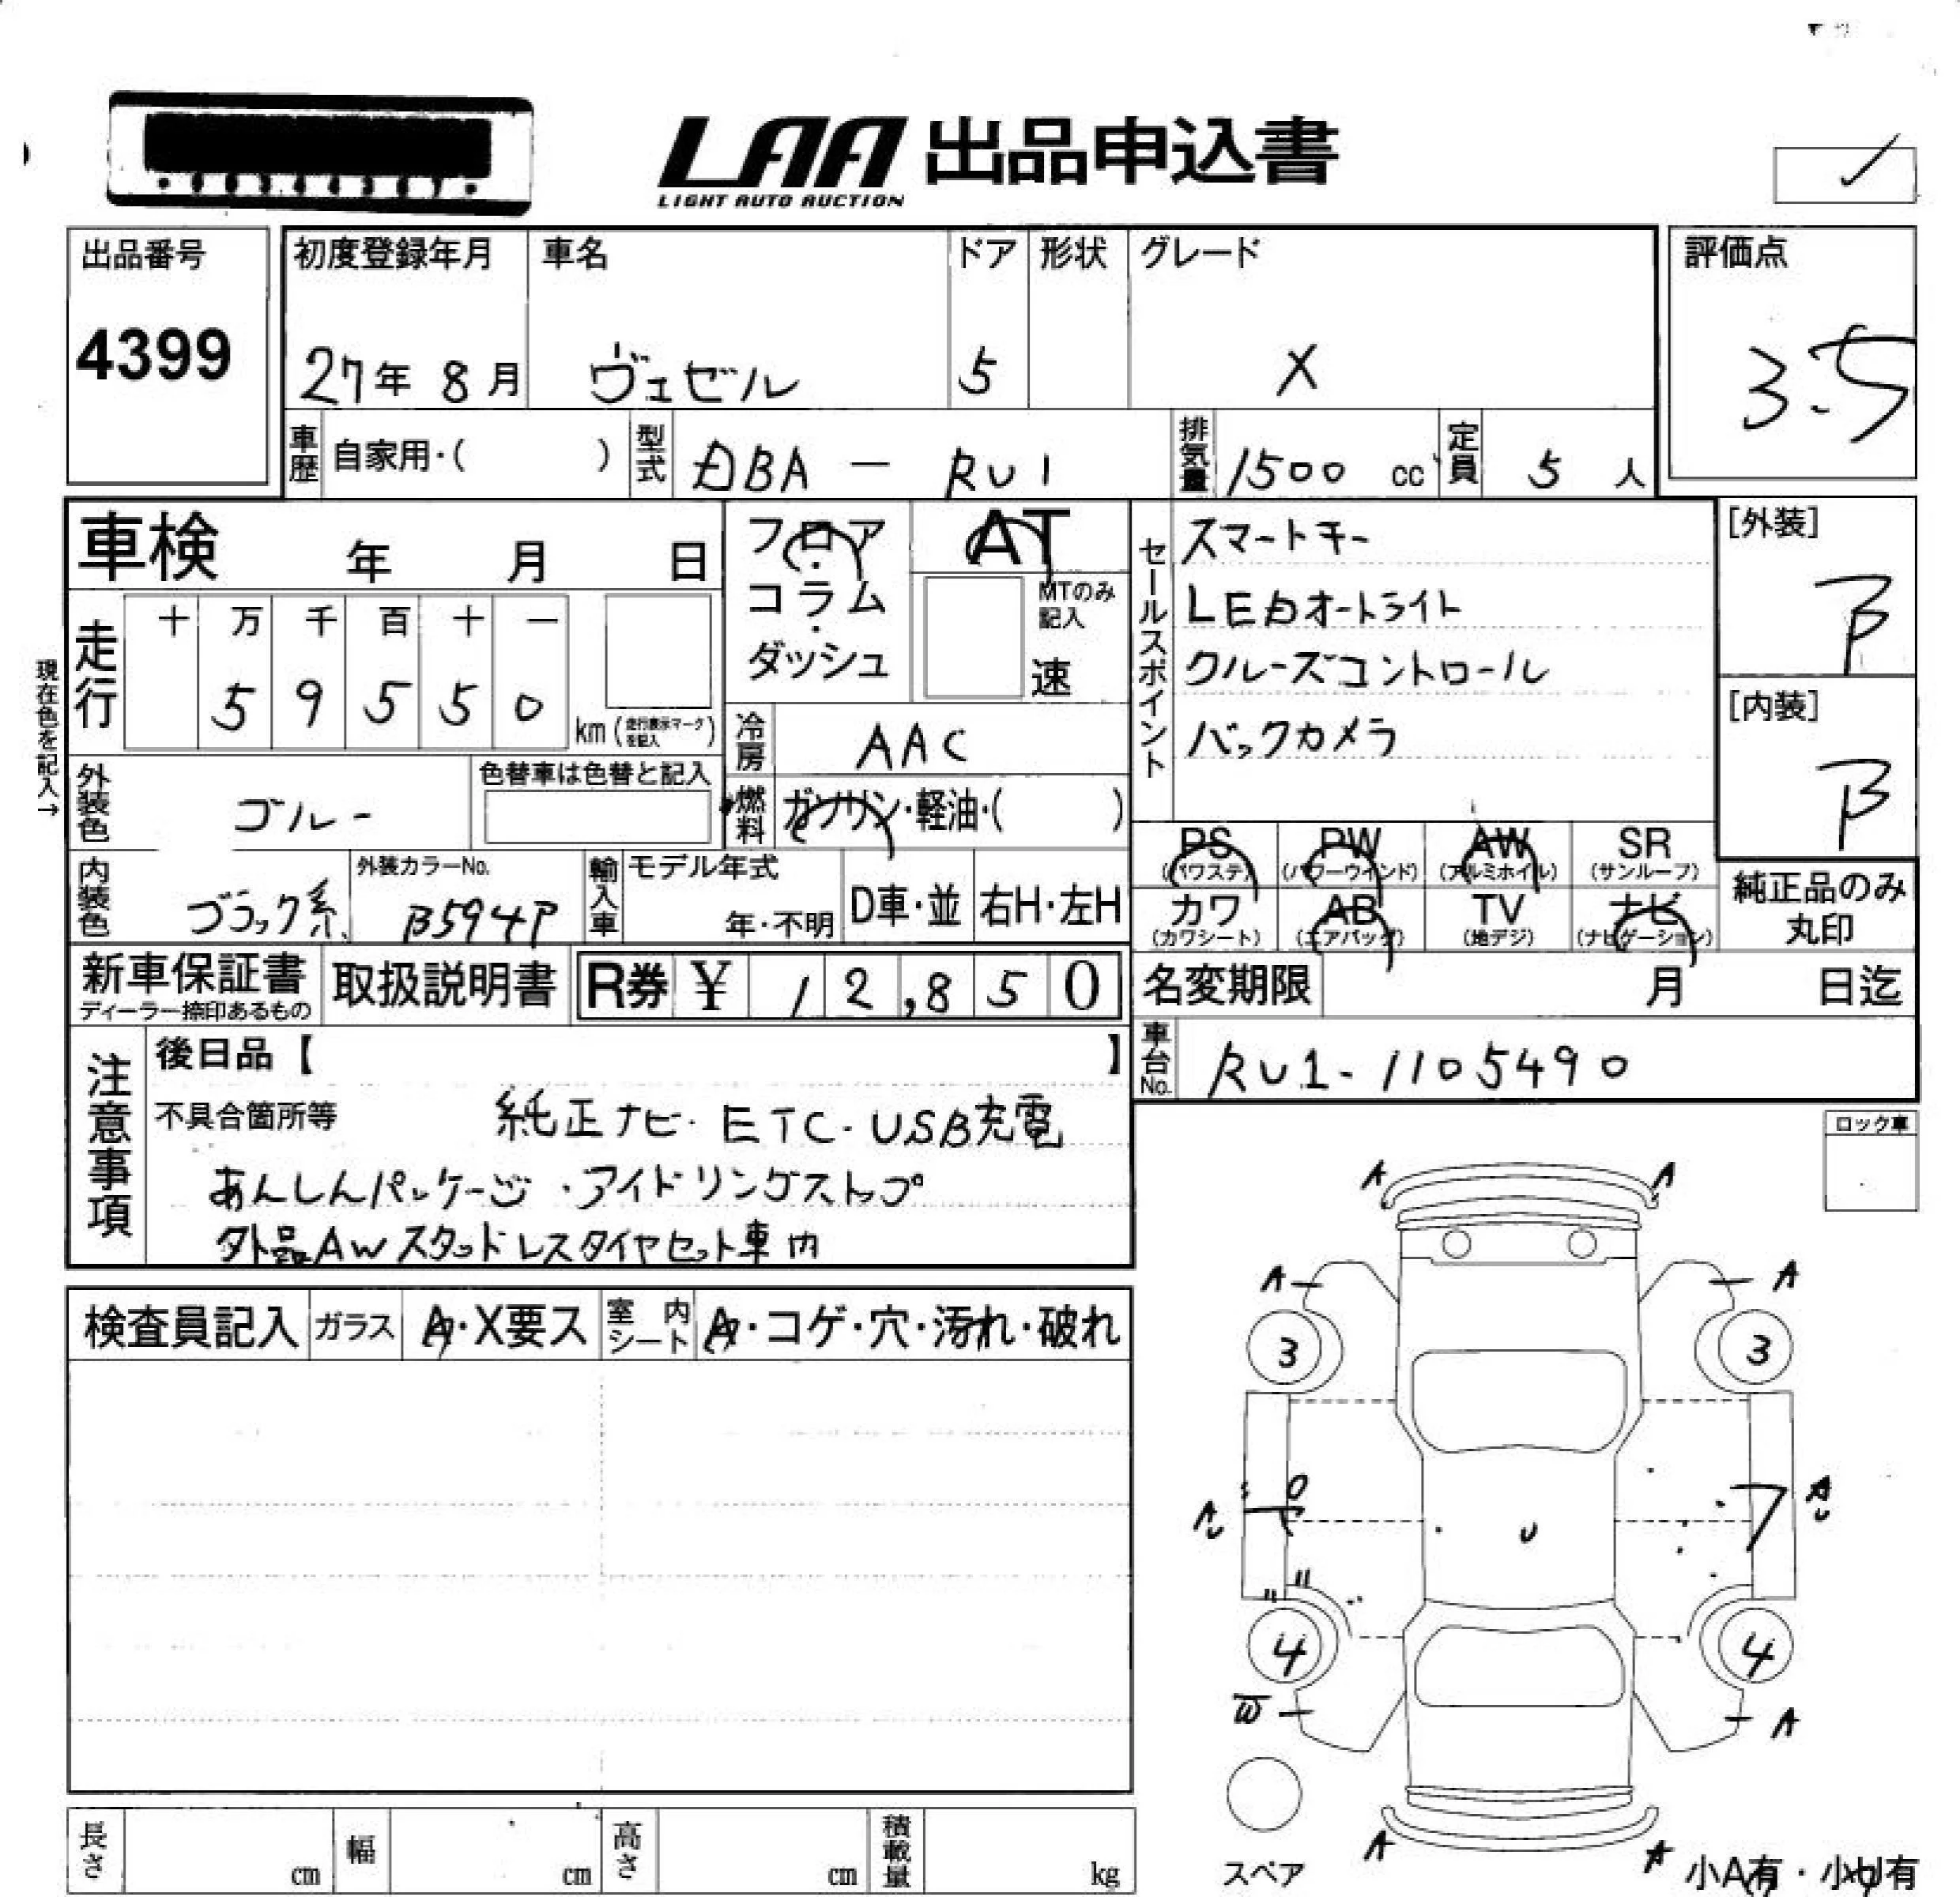 LAA 出品申込書
LIGHT AUTO AUCTION
出品番号
4399
初度登録年月 車名 ドア 形状 グレード
27年 8月 ヴェゼル 5 X
評価点
3.5
車歴 自家用・( ) 型式 DBA － RU1 排気量 1500 cc 定員 5 人
車検 年 月 日
フロア・コラム・ダッシュ
AT
MTのみ記入
速
セールスポイント
スマートキー
LEDオートライト
クルーズコントロール
バックカメラ
[外装]
B
[内装]
B
現在色を記入→
走行 十 万 千 百 十 一
5 9 5 5 0
km (走行表示マークを記入)
冷房 AAC
外装色 ブルー 色替車は色替と記入
燃料 ガソリン・軽油・( )
PS PW AW SR
(パワステ) (パワーウインド) (アルミホイル) (サンルーフ)
カワ AB TV ナビ
(カワシート) (エアバッグ) (地デジ) (ナビゲーション)
純正品のみ
丸印
内装色 ブラック系 外装カラーNo. B594P 輸入車 モデル年式 年・不明 D車・並 右H・左H
新車保証書
ディーラー捺印あるもの
取扱説明書
R券 ¥ 12,850
名変期限 月 日迄
車台No. RU1-1105490
注意事項
後日品【 】
不具合箇所等 純正ナビ・ETC・USB充電
あんしんパッケージ・アイドリングストップ
外品AWスタッドレスタイヤセット車内
ロック車
検査員記入 ガラス A・X要ス 室内シート A・コゲ・穴・汚れ・破れ
A A
A A
3 3
U
4 4
W A
A A
スペア
小A有・小U有
長さ cm 幅 cm 高さ cm 積載量 kg